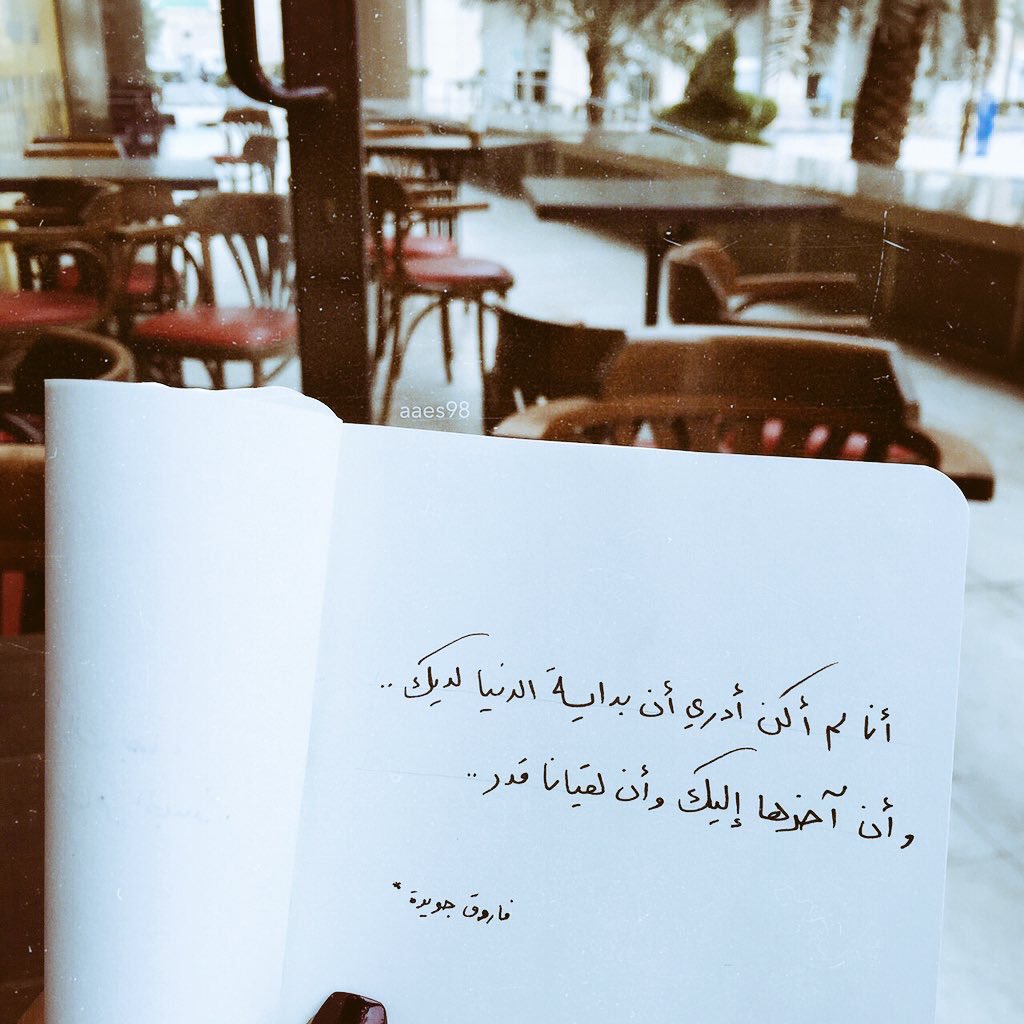 aaes98
أنا لم أكن أدري أن بداية الدنيا لديك ..
و أن آخرها إليك وأن لقيانا قدر ..
فاروق جويدة *